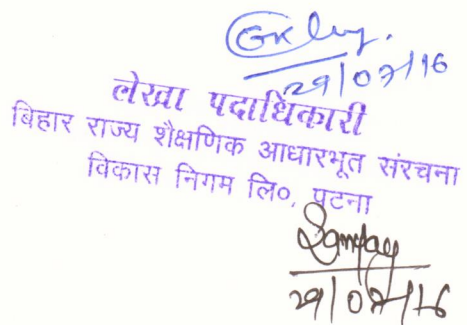 29/07/16
लेखा पदाधिकारी
बिहार राज्य शैक्षणिक आधारभूत संरचना
विकास निगम लि०, पटना
29/07/16